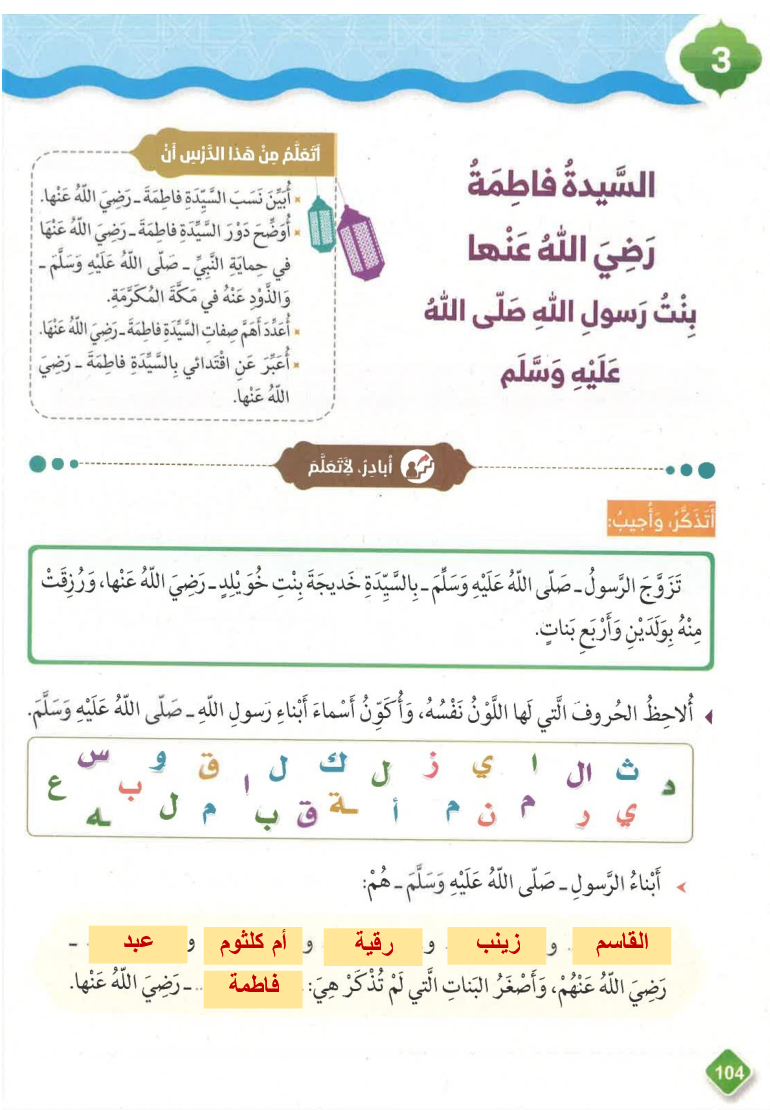 3
السَّيدةُ فاطِمَةُ
رَضِيَ اللهُ عَنْها
بِنْتُ رَسولِ اللهِ صَلّى اللهُ
عَلَيْهِ وَسَلَّم
أَتَعَلَّمُ مِنْ هَذا الدَّرْسِ أَنْ
أُبَيِّنَ نَسَبَ السَّيِّدَةِ فاطِمَةَ ـ رَضِيَ اللّهُ عَنْها.
أُوَضِّحَ دَوْرَ السَّيِّدَةِ فاطِمَةَ ـ رَضِيَ اللّهُ عَنْهَا
في حِمايَةِ النَّبِيِّ ـ صَلَّى اللّهُ عَلَيْهِ وَسَلَّمَ ـ
وَالذَّوْدِ عَنْهُ في مَكَّةَ المُكَرَّمَةِ.
أُعَدِّدَ أَهَمَّ صِفاتِ السَّيِّدَةِ فاطِمَةَ ـ رَضِيَ اللّهُ عَنْها.
أُعَبِّرَ عَنِ اقْتِدائي بِالسَّيِّدَةِ فاطِمَةَ ـ رَضِيَ
اللّهُ عَنْها.
أُبادِرُ، لِأَتَعَلَّمَ
أَتَذَكَّرُ، وَأُجيبُ:
تَزَوَّجَ الرَّسولُ ـ صَلّى اللّهُ عَلَيْهِ وَسَلَّمَ ـ بِالسَّيِّدَةِ خَديجَةَ بِنْتِ خُوَيْلِدٍ ـ رَضِيَ اللّهُ عَنْها، وَرُزِقَتْ
مِنْهُ بِوَلَدَيْنِ وَأَرْبَعِ بَناتٍ.
أُلاحِظُ الحُروفَ الَّتي لَها اللَّوْنُ نَفْسُهُ، وَأُكَوِّنُ أَسْماءَ أَبْناءِ رَسولِ اللّهِ ـ صَلّى اللّهُ عَلَيْهِ وَسَلَّمَ.
د ث ال ا ي ز ل ك ل ق و س
ي ر م ن م أ ـة ق ب ا م ل ب ـه ع
أَبْناءُ الرَّسولِ ـ صَلّى اللّهُ عَلَيْهِ وَسَلَّمَ ـ هُمْ:
القاسم و زينب و رقية و أم كلثوم و عبد ـ
رَضِيَ اللّهُ عَنْهُمْ، وَأَصْغَرُ البَناتِ الَّتي لَمْ تُذْكَرْ هِيَ: فاطمة ـ رَضِيَ اللّهُ عَنْها.
104